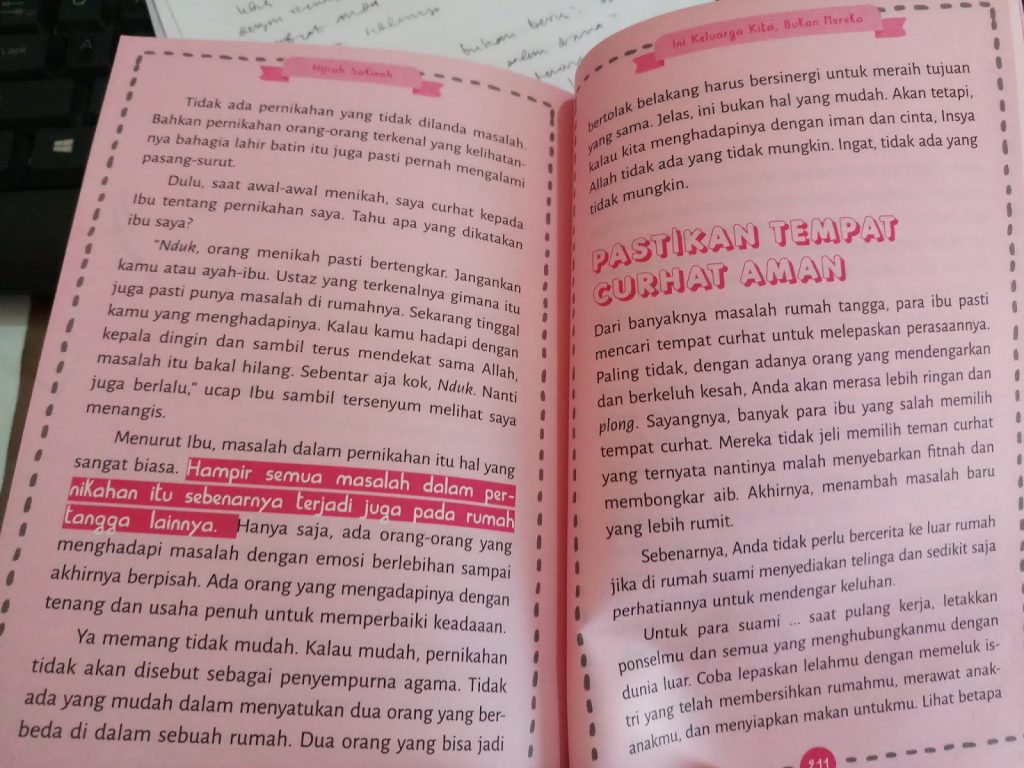 Hijrah Sakinah
Tidak ada pernikahan yang tidak dilanda masalah.
Bahkan pernikahan orang-orang terkenal yang kelihatan-
nya bahagia lahir batin itu juga pasti pernah mengalami
pasang-surut.
Dulu, saat awal-awal menikah, saya curhat kepada
Ibu tentang pernikahan saya. Tahu apa yang dikatakan
ibu saya?
"Nduk, orang menikah pasti bertengkar. Jangankan
kamu atau ayah-ibu. Ustaz yang terkenalnya gimana itu
juga pasti punya masalah di rumahnya. Sekarang tinggal
kamu yang menghadapinya. Kalau kamu hadapi dengan
kepala dingin dan sambil terus mendekat sama Allah,
masalah itu bakal hilang. Sebentar aja kok, Nduk. Nanti
juga berlalu," ucap Ibu sambil tersenyum melihat saya
menangis.
Menurut Ibu, masalah dalam pernikahan itu hal yang
sangat biasa. Hampir semua masalah dalam per-
nikahan itu sebenarnya terjadi juga pada rumah
tangga lainnya. Hanya saja, ada orang-orang yang
menghadapi masalah dengan emosi berlebihan sampai
akhirnya berpisah. Ada orang yang mengadapinya dengan
tenang dan usaha penuh untuk memperbaiki keadaaan.
Ya memang tidak mudah. Kalau mudah, pernikahan
tidak akan disebut sebagai penyempurna agama. Tidak
ada yang mudah dalam menyatukan dua orang yang ber-
beda di dalam sebuah rumah. Dua orang yang bisa jadi
Ini Keluarga Kita, Bukan Mereka
bertolak belakang harus bersinergi untuk meraih tujuan
yang sama. Jelas, ini bukan hal yang mudah. Akan tetapi,
kalau kita menghadapinya dengan iman dan cinta, Insya
Allah tidak ada yang tidak mungkin. Ingat, tidak ada yang
tidak mungkin.
PASTIKAN TEMPAT
CURHAT AMAN
Dari banyaknya masalah rumah tangga, para ibu pasti
mencari tempat curhat untuk melepaskan perasaannya.
Paling tidak, dengan adanya orang yang mendengarkan
dan berkeluh kesah, Anda akan merasa lebih ringan dan
plong. Sayangnya, banyak para ibu yang salah memilih
tempat curhat. Mereka tidak jeli memilih teman curhat
yang ternyata nantinya malah menyebarkan fitnah dan
membongkar aib. Akhirnya, menambah masalah baru
yang lebih rumit.
Sebenarnya, Anda tidak perlu bercerita ke luar rumah
jika di rumah suami menyediakan telinga dan sedikit saja
perhatiannya untuk mendengar keluhan.
Untuk para suami ... saat pulang kerja, letakkan
ponselmu dan semua yang menghubungkanmu dengan
dunia luar. Coba lepaskan lelahmu dengan memeluk is-
tri yang telah membersihkan rumahmu, merawat anak-
anakmu, dan menyiapkan makan untukmu. Lihat betapa
211